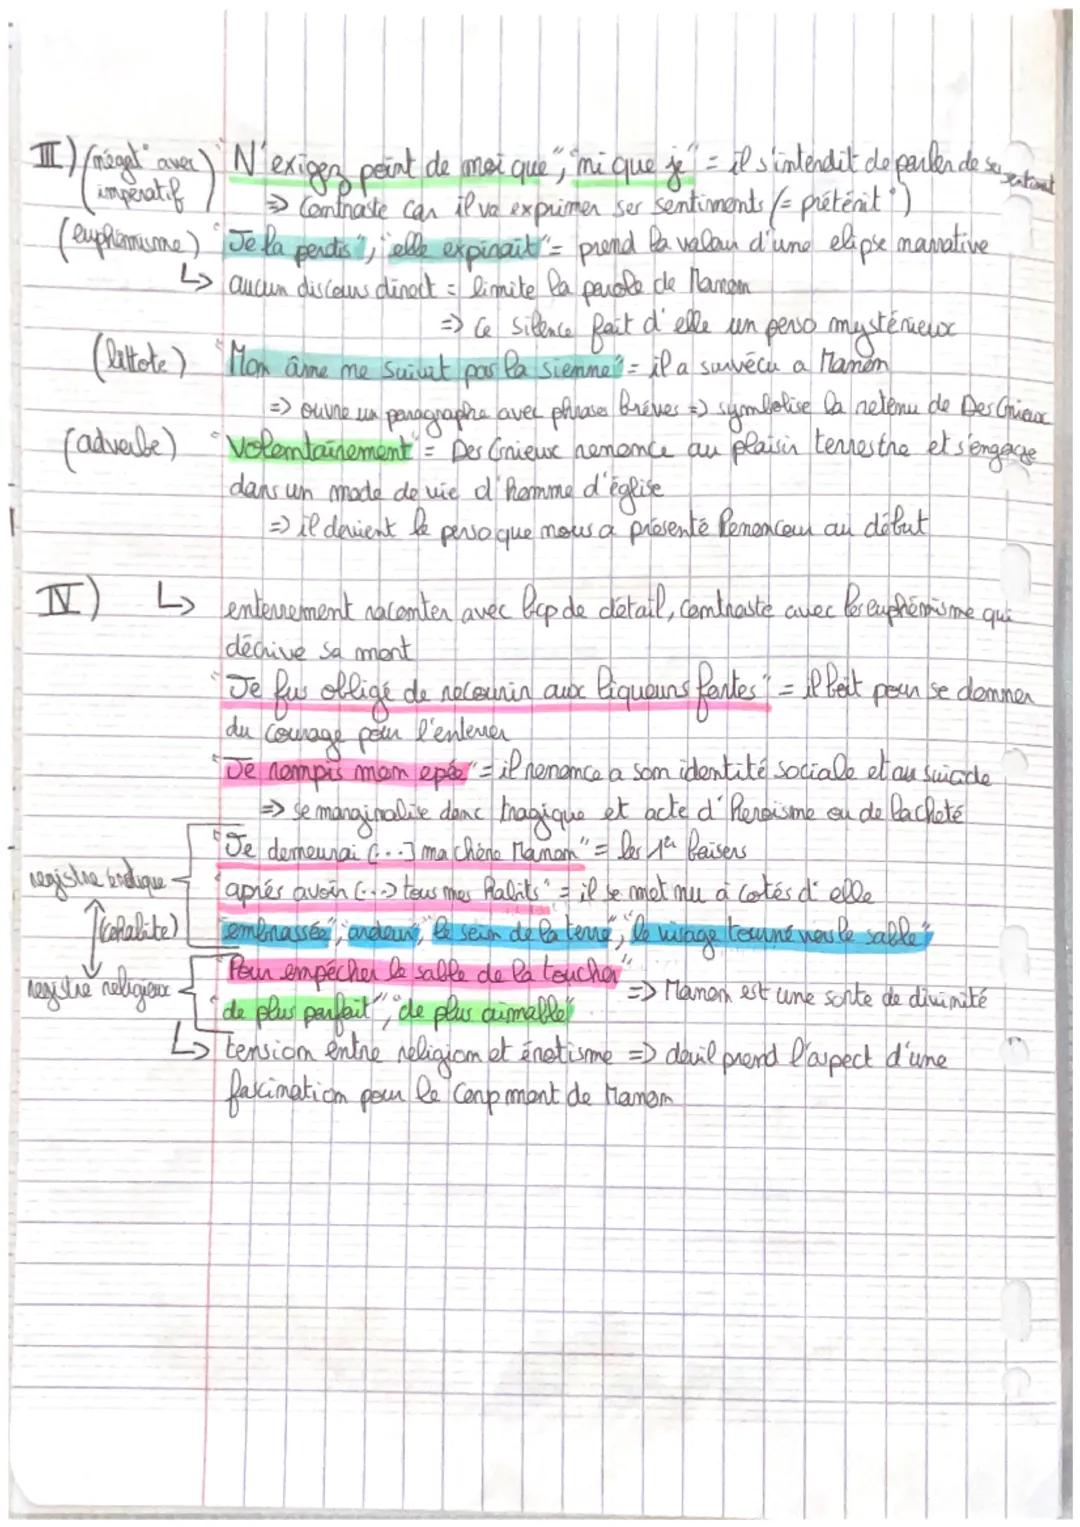 III) (négat° avec impératif) "N'exigez point de moi que", "ni que je" = il s'interdit de parler de ses sentiment
=> Contraste car il va exprimer ses sentiments (= prétérit°)
(euphémisme) "Je la perdis", "elle expirait" = prend la valeur d'une elipse narrative
↳ aucun discours direct = limite la parole de Manon
=> Ce silence fait d'elle un perso mystérieux
(littote) "Mon âme me suivit pas la sienne" = il a survécu a Manon
=> ouvre un paragraphe avec phrases brèves => symbolise la retenu de Des Grieux
(adverbe) "Volontairement" = Des Grieux renonce au plaisir terrestre et s'engage
dans un mode de vie d'homme d'église
=> il devient le perso que nous a présenté Renoncour au début
IV) ↳ enterrement raconter avec bcp de détail, contraste avec les euphémisme qui
décrive sa mort
"Je fus obligé de recourir aux liqueurs fortes" = il boit pour se donner
du courage pour l'enterrer
"Je rompis mon epée" = il renonce a son identité sociale et au suicide
=> se marginalise donc tragique et acte d'heroisme ou de lacheté
"Je demeurai (...] ma chère Manon" = les 1er baisers
registre érotique "aprés avoir (...) tous mes habits" = il se met nu à cotés d'elle
(cohabite) "embrassée", "ardeur", "le sein de la terre", "le visage tourné vers le sable"
"Pour empêcher le sable de la toucher"
registre religieux "de plus parfait", "de plus aimable" => Manon est une sorte de divinité
↳ tension entre religion et érotisme => deuil prend l'aspect d'une
fascination pour le Corp mort de Manon